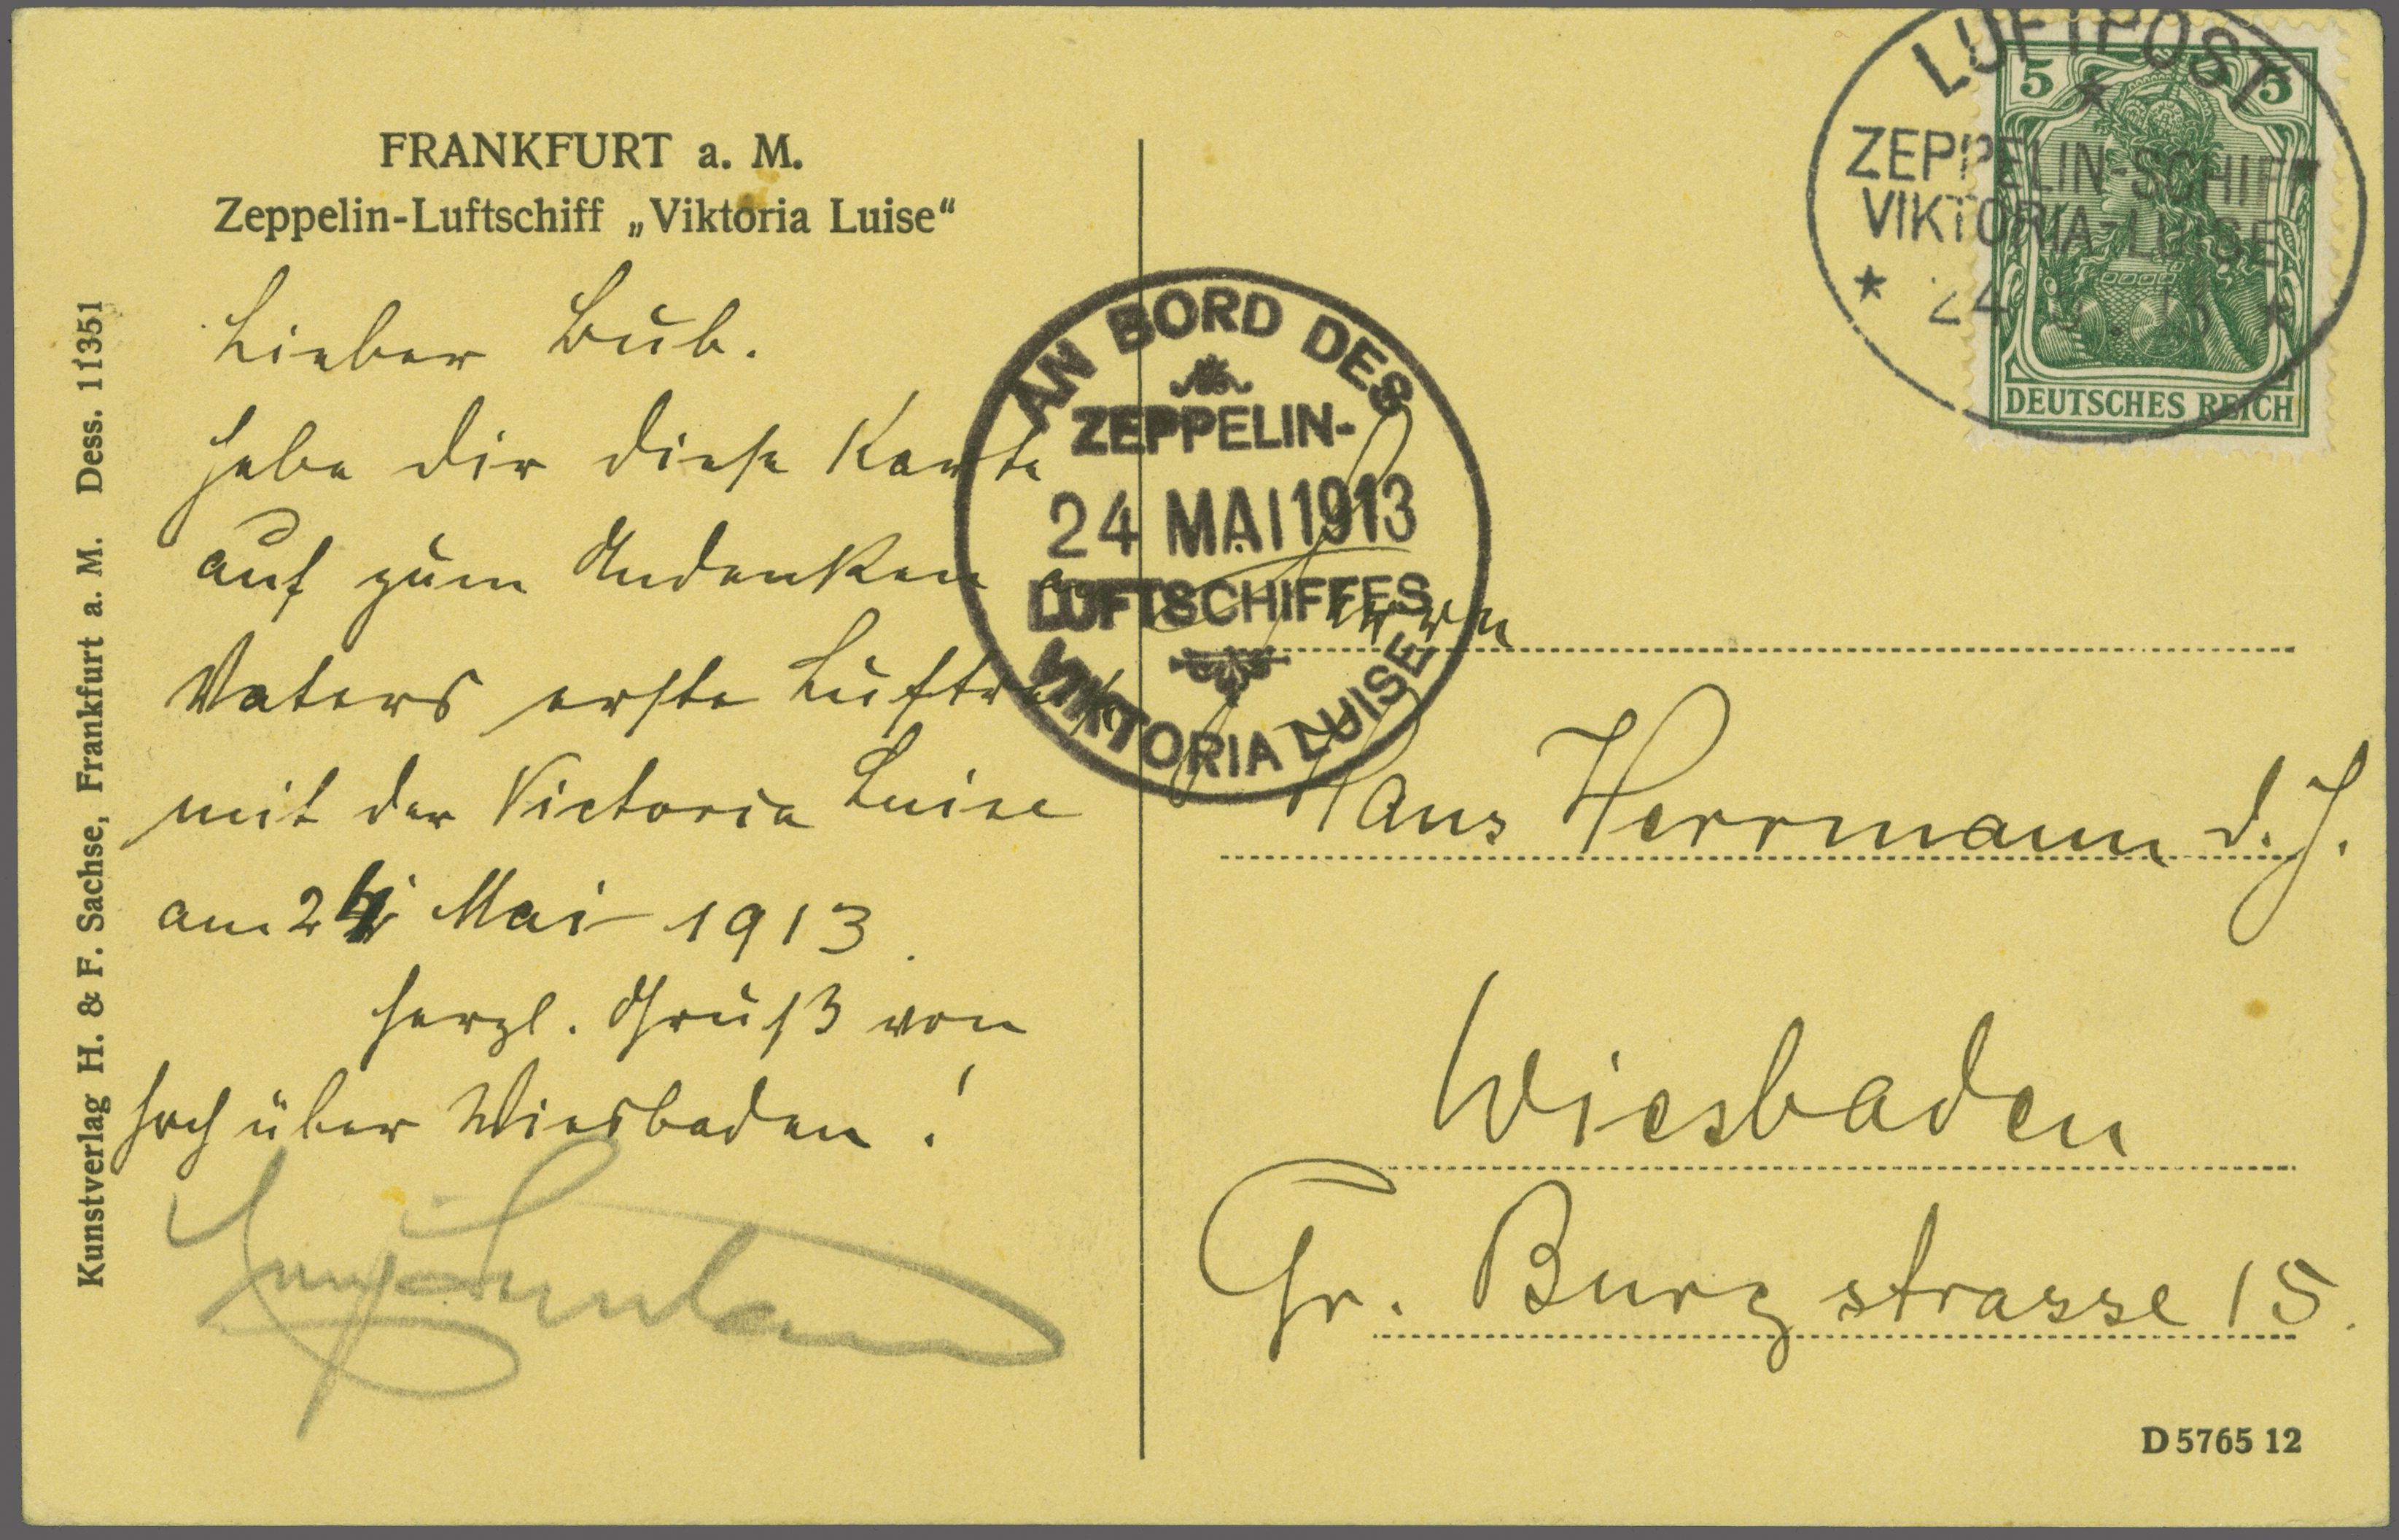 FRANKFURT a. M.
Zeppelin-Luftschiff „Viktoria Luise“
Lieber Bub.
hebe dir diese Karte
auf zum Andenken an
Vaters erste Luftreise
mit der Victoria Luise
am 24 Mai 1913.
herzl. Gruß von
hoch über Wiesbaden!
Kunstverlag H. & F. Sachse, Frankfurt a. M. Dess. 11351
AN BORD DES
ZEPPELIN-
24 MAI 1913
LUFTSCHIFFES
VIKTORIA LUISE
LUFTPOST
ZEPPELIN-SCHIFF
VIKTORIA-LUISE
* 24 *
5 5
DEUTSCHES REICH
Herrn
Hans Herrmann d. J.
Wiesbaden
Gr. Burgstrasse 15.
D 5765 12